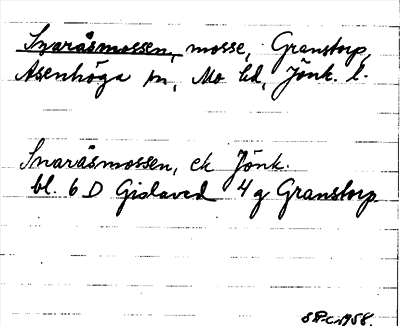 Snaråsmossen, mosse, Granstorp,
Åsenhöga sn, Mo hd, Jönk. l.
Snaråsmossen, ek Jönk.
bl. 6 D Gislaved 4 g Granstorp
1958.